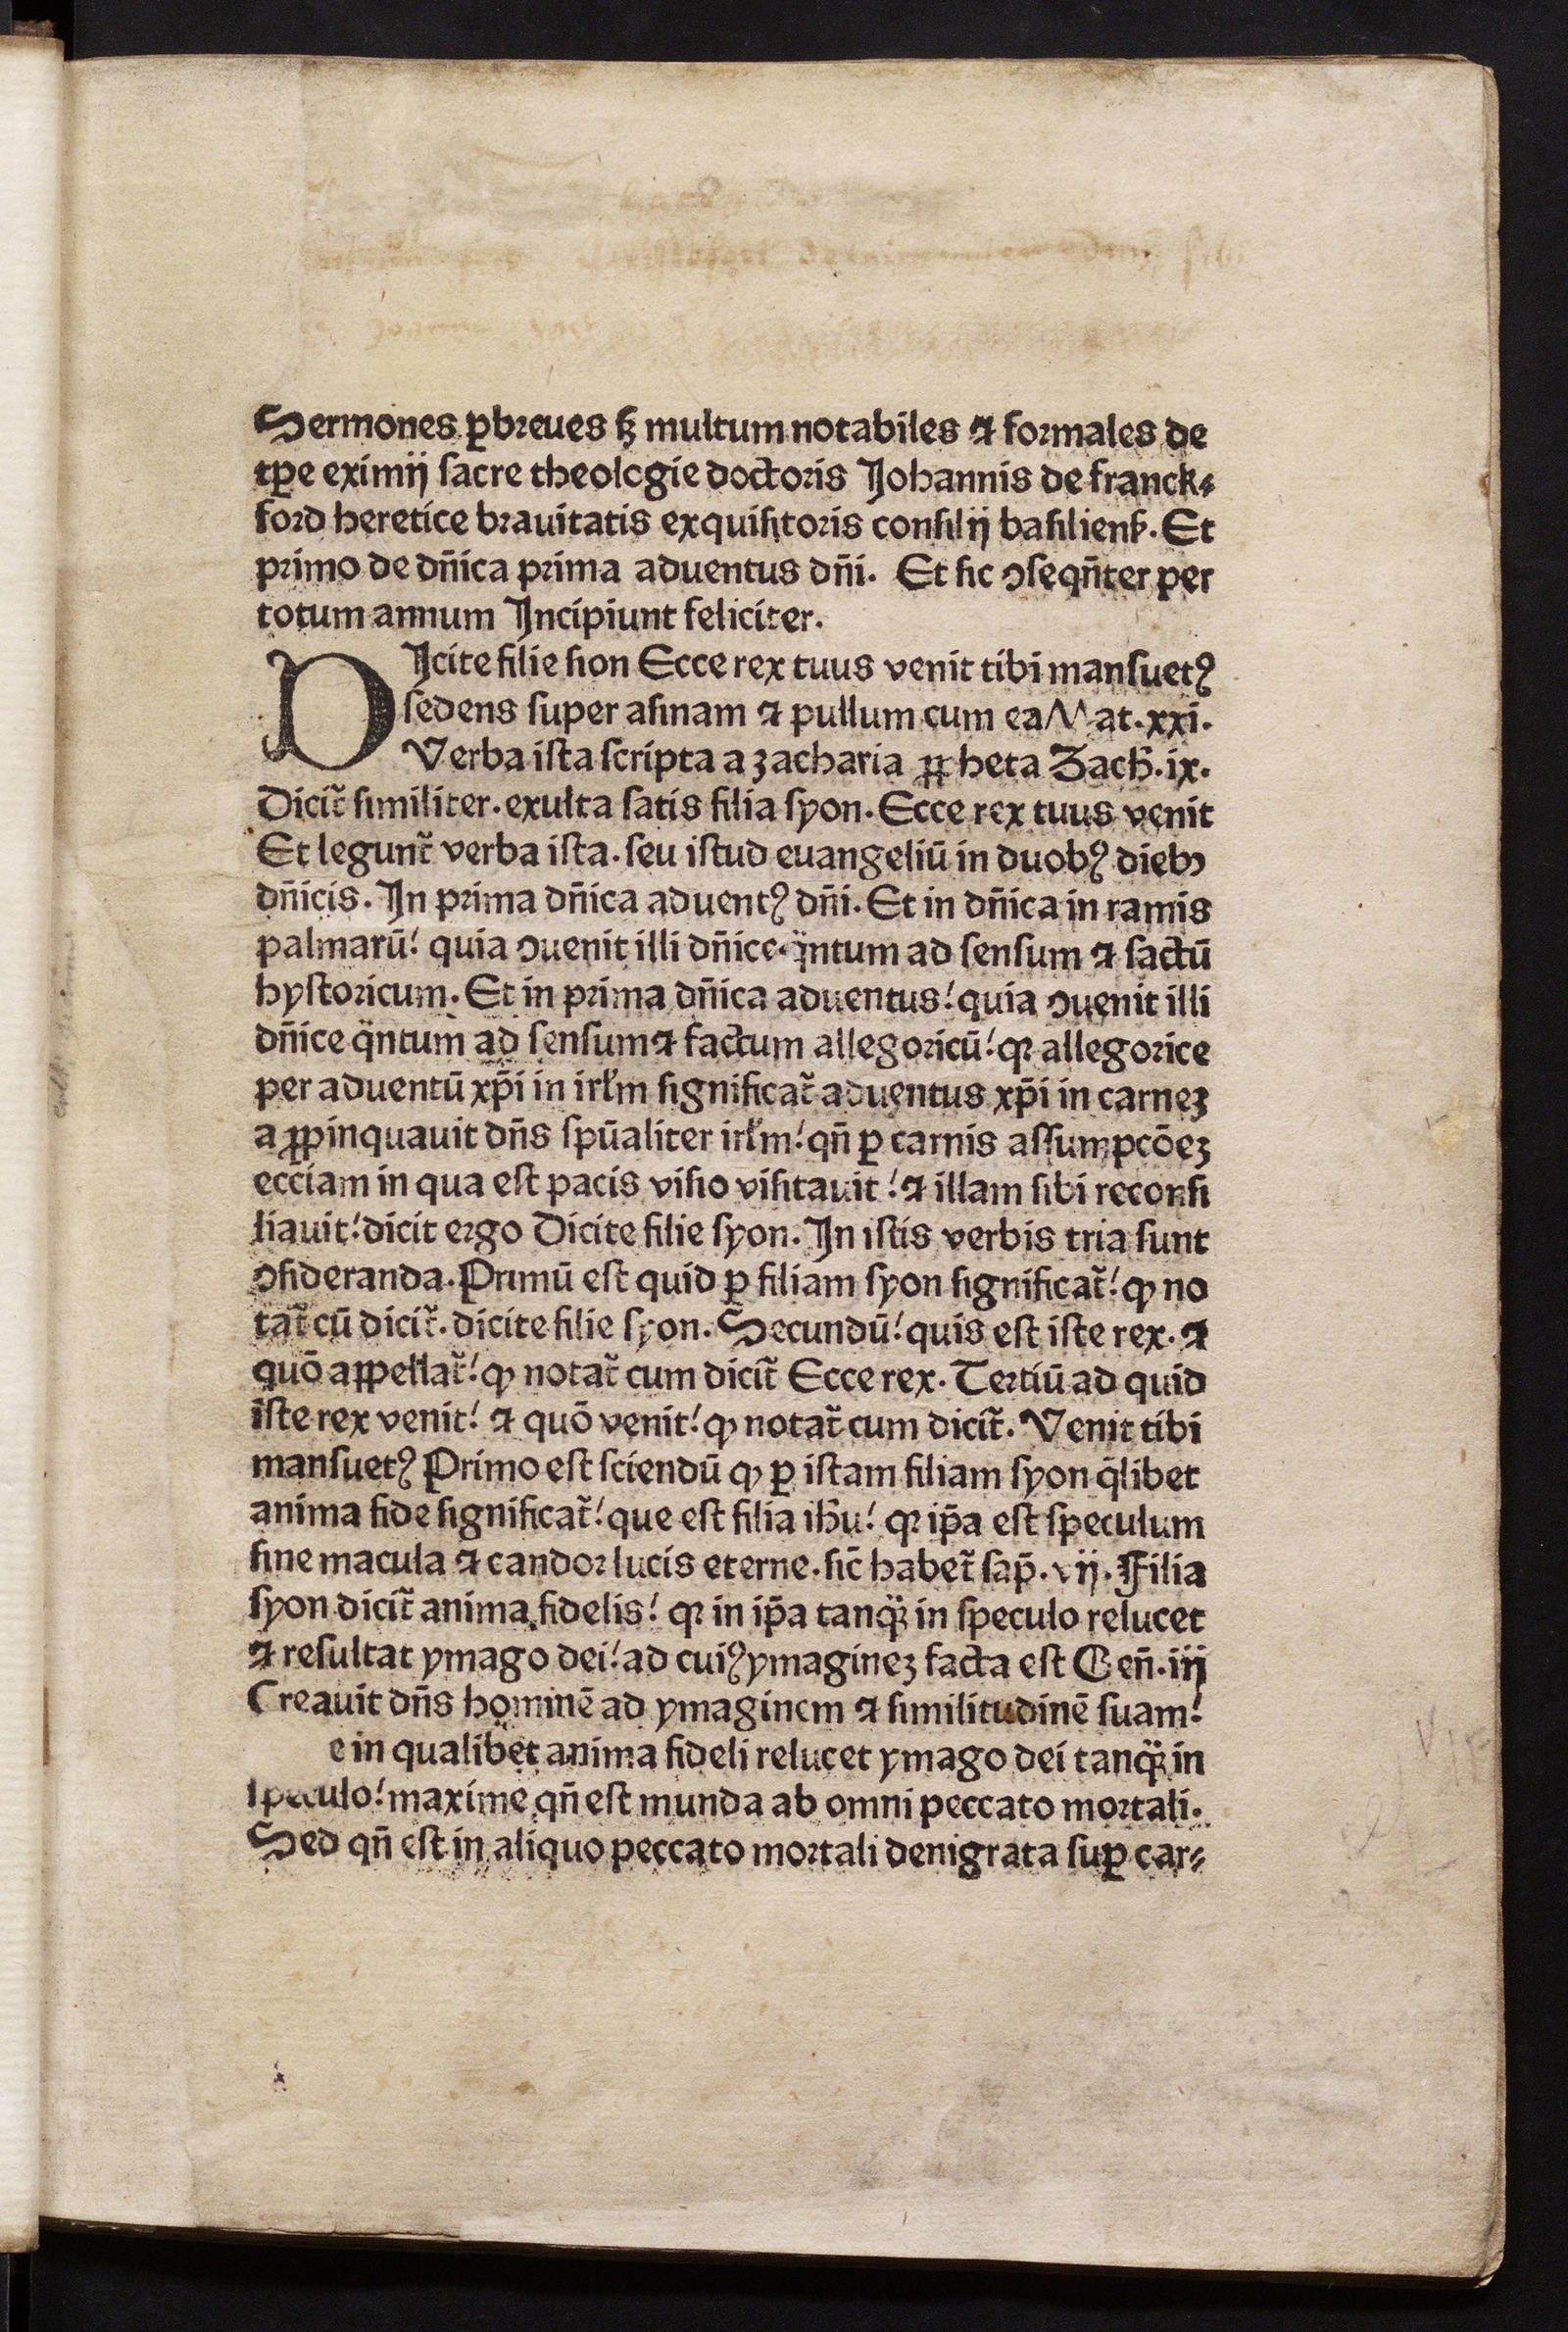 Sermones ꝑbreues sꝫ multum notabiles ⁊ formales de
tꝑe eximij sacre theologie doctoris Johannis de franck⸗
ford heretice brauitatis exquisitoris consilij basiliens̃. Et
primo de dñica prima aduentus dñi. Et sic ꝯseqñter per
totum annum Incipiunt feliciter.
DIcite filie sion Ecce rex tuus venit tibi mansuetꝰ
sedens super asinam ⁊ pullum cum ea Mat.xxi.
Verba ista scripta a zacharia ꝓpheta Zach̃.ix.
Dicit̃ similiter.exulta satis filia syon.Ecce rex tuus venit
Et legunt̃ verba ista.seu istud euangeliū in duobꝰ diebꝫ
dñicis. In prima dñica aduentꝰ dñi.Et in dñica in ramis
palmarū! quia ꝯuenit illi dñice.qͣntum ad sensum ⁊ sactū
hystoricum.Et in prima dñica aduentus!quia ꝯuenit illi
dñice qͣntum ad sensum ⁊ factum allegoricū!qꝛ allegorice
per aduentū xp̄i in irłm significat̃ aduentus xp̄i in carneꝫ
a ꝓpinquauit dñs spūaliter irłm!qñ ꝑ carnis assumpcōeꝫ
ecc̄iam in qua est pacis visio visitauit!⁊ illam sibi reconsi
liauit!dicit ergo Dicite filie syon.In istis verbis tria sunt
ꝯsideranda.Primū est quid ꝑ filiam syon significat̃!ꝙ no
tat̃ cū dicit̃.dicite filie syon.Secundū!quis est iste rex.⁊
quō appellat̃!ꝙ notat̃ cum dicit̃ Ecce rex.Tertiū ad quid
iste rex venit!⁊ quō venit!ꝙ notat̃ cum dicit̃.Venit tibi
mansuetꝰ Primo est sciendū ꝙ ꝑ istam filiam syon q̄libet
anima fide significat̃!que est filia ih̄u! qꝛ ip̄a est speculum
sine macula ⁊ candor lucis eterne.sic̄ habet̃ sap̄.vij.Filia
syon dicit̃ anima fidelis! qꝛ in ip̄a tanqͣꝫ in speculo relucet
⁊ resultat ymago dei!ad cuiꝰ ymagineꝫ facta est Geñ.iij
Creauit dñs hominē ad ymaginem ⁊ similitudinē suam!
e in qualibet anima fideli relucet ymago dei tanqͣꝫ in
speculo!maxime qñ est munda ab omni peccato mortali.
Sed qñ est in aliquo peccato mortali denigrata suꝑ car⸗